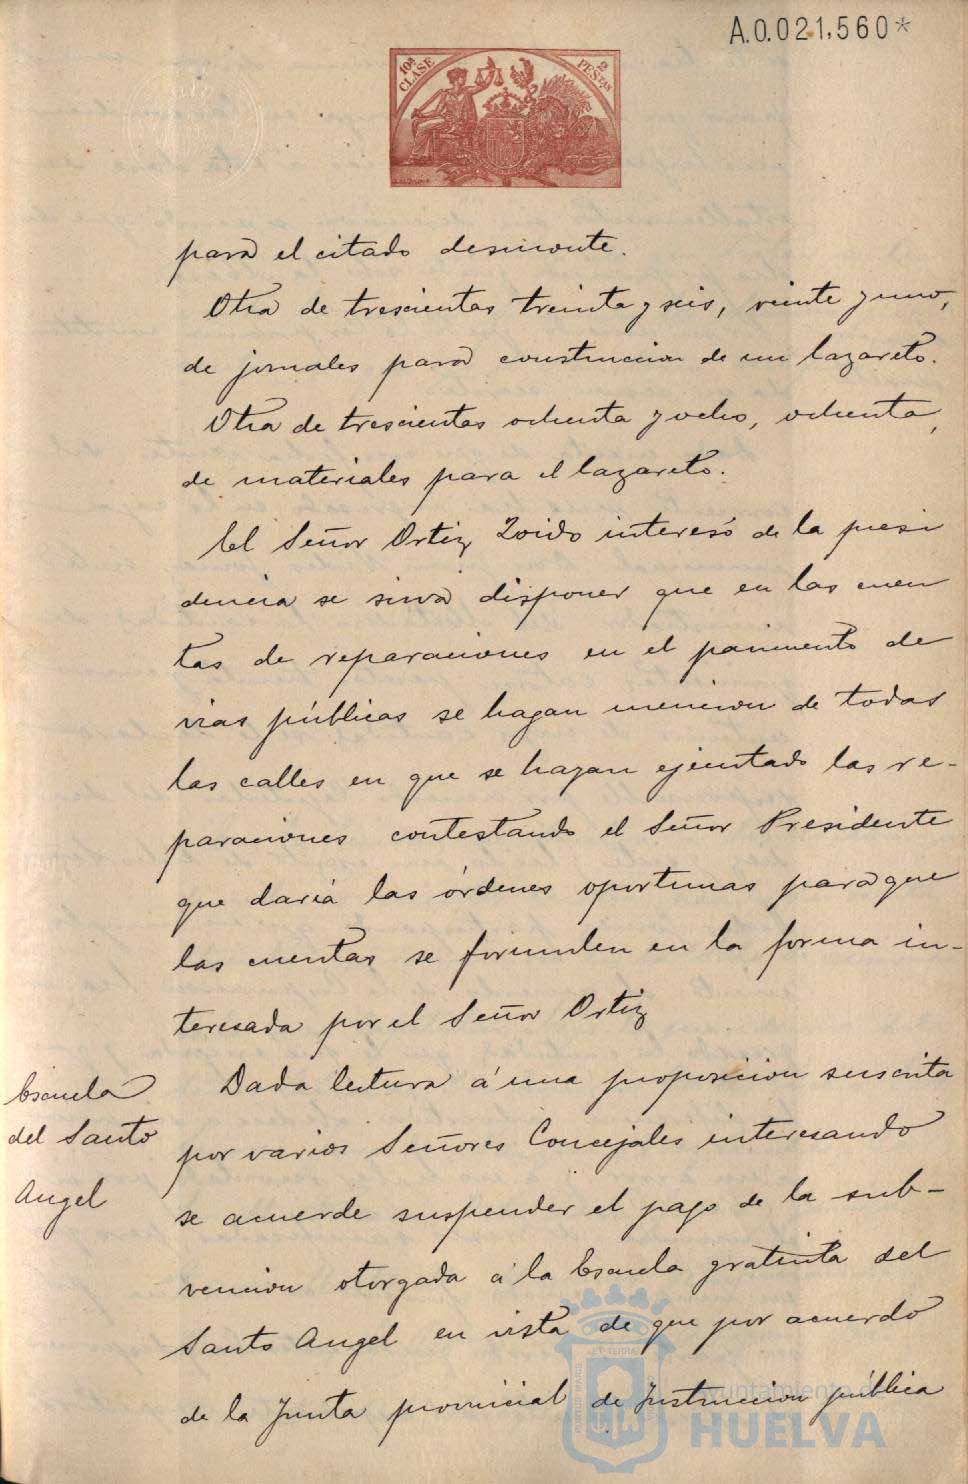 A.0.021,560*
10ª CLASE
2 PESTAS
para el citado desmonte.
Otra de trescientas treinta y seis, veinte y uno,
de jornales para construccion de un lazareto.
Otra de trescientas ochenta y ocho, ochenta,
de materiales para el lazareto.
El Señor Ortiz Zoido interesó de la presi
dencia se sirva disponer que en las cuen
tas de reparaciones en el pavimento de
vias públicas se hagan mencion de todas
las calles en que se hayan ejecutado las re-
paraciones contestando el Señor Presidente
que daria las órdenes oportunas para que
las cuentas se formulen en la forma in-
teresada por el Señor Ortiz
Escuela
del Santo
Angel
Dada lectura á una proposicion suscrita
por varios Señores Concejales interesando
se acuerde suspender el pago de la sub-
vencion otorgada á la Escuela gratuita del
Santo Angel en vista de que por acuerdo
de la Junta provincial de Instruccion pública
Ayuntamiento de
HUELVA